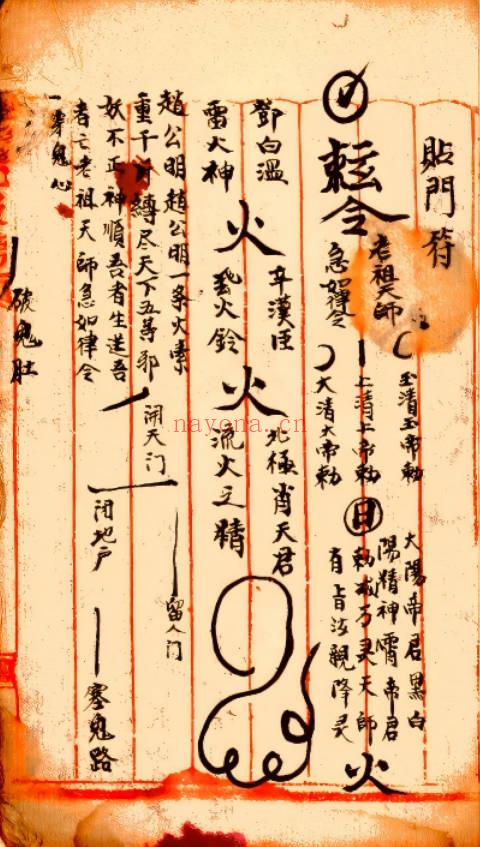 貼門符
敕令
老祖天師
急如律令
玉清玉帝勅
上清上帝勅
大清大帝勅
日
大陽帝君黑白
陽精神霄帝君
勅滅了灵天師
有旨法親降灵
火
鄧白溫
雷火神
火
辛漢臣
火鈴
火
北極肖天君
流火之精
趙公明趙公明一条火索
重千斤縛尽天下五等邪
妖不正神順吾者生逆吾
者亡老祖天師急如律令
開天门
闭地户
留人门
塞鬼路
一穿鬼心
破鬼肚
nayona.cn